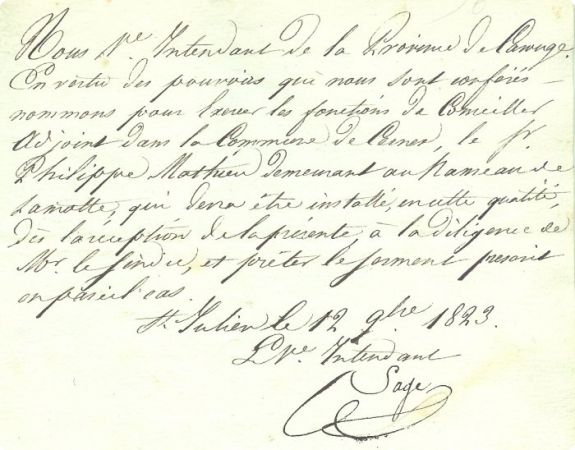 Nous Vce. Intendant de la Province de Carouge.
En vertu des pouvoirs que nous sont conférés
nommons pour Exercer les fonctions de Conseiller
adjoint dans la Commune de Cernex, le Sr.
Philippe Mathieu demeurant au hameau de
Lamotte, qui devra être installé, en cette qualité,
dès la réception de la présente, à la diligence de
Mr. le Sindic, et prêter le serment prescrit
en pareil cas.
St. Julien le 12 9bre 1823.
L Vce. Intendant
Sage